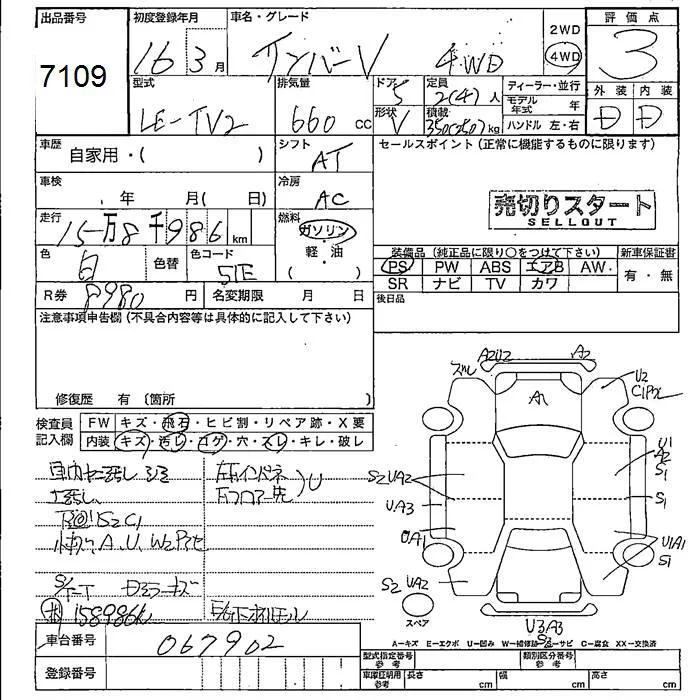 出品番号
7109
初度登録年月
16 3月
車名・グレード
サンバーV 4WD
2WD
4WD
評価点
3
外装 内装
D D
型式
LE-TV2
排気量
660 cc
ドア
5
形状
V
定員
2(4)人
積載
350(250)kg
ディーラー・並行
モデル年式 年
ハンドル 左・右
車歴
自家用・( )
シフト
AT
車検
年 月( 日)
冷房
AC
走行
15万8千986km
燃料
ガソリン
軽・油
( )
色
白
色替
色コード
51E
R券
8980円
名変期限 月 日
セールスポイント(正常に機能するものに限ります)
売切りスタート
SELLOUT
装備品(純正品に限り○をつけて下さい)
PS PW ABS エアB AW
SR ナビ TV カワ
新車保証書
有・無
後日品
注意事項申告欄(不具合内容等は具体的に記入して下さい)
修復歴 有(箇所 )
検査員記入欄
FW キズ・飛石・ヒビ割・リペア跡・X要
内装 キズ・汚レ・コゲ・穴・スレ・キレ・破レ
A2U2
A2
A1
U2
U1
A2
S1
S1
U1A1
S1
S2UA2
UA3
UA1
S2 UA2
U3A3
S2
スペア
A-キズ E-エクボ U-凹み W-補修跡 S-サビ C-腐食 XX-交換済
158986km
車台番号
067902
登録番号
型式指定番号
参考
類別区分番号
参考
車庫証明用
参考
長さ cm
幅 cm
高さ cm